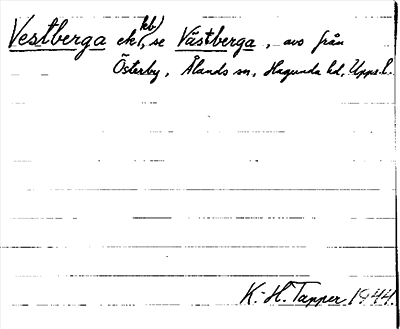 Vestberga ek, kb) se Västberga, avs från
Österby, Ålands sn, Hagunda hd, Upps. l.
K.-H. Tapper 1944.